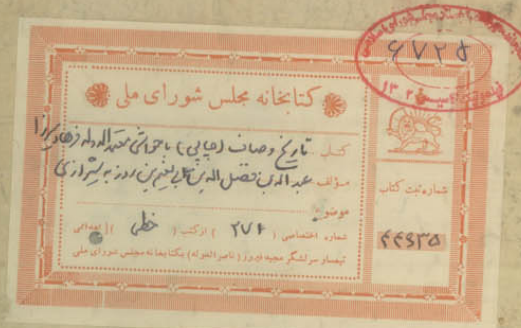 ۶۷۲۵
کتابخانه مجلس شورای ملی
کتاب تاریخ وصاف (چاپی) با حواشی معتمدالدوله فرهاد میرزا
مؤلف عبدالله بن فضل الله بن ابی نعیم بن روزبه شیرازی
موضوع
شماره اختصاصی ( ۲۷۱ ) از کتب ( خطی ) اهدائی
تیمسار سرلشگر مجید فیروز (ناصرالدوله) بکتابخانه مجلس شورای ملی
شماره ثبت کتاب
۴۴۹۳۵